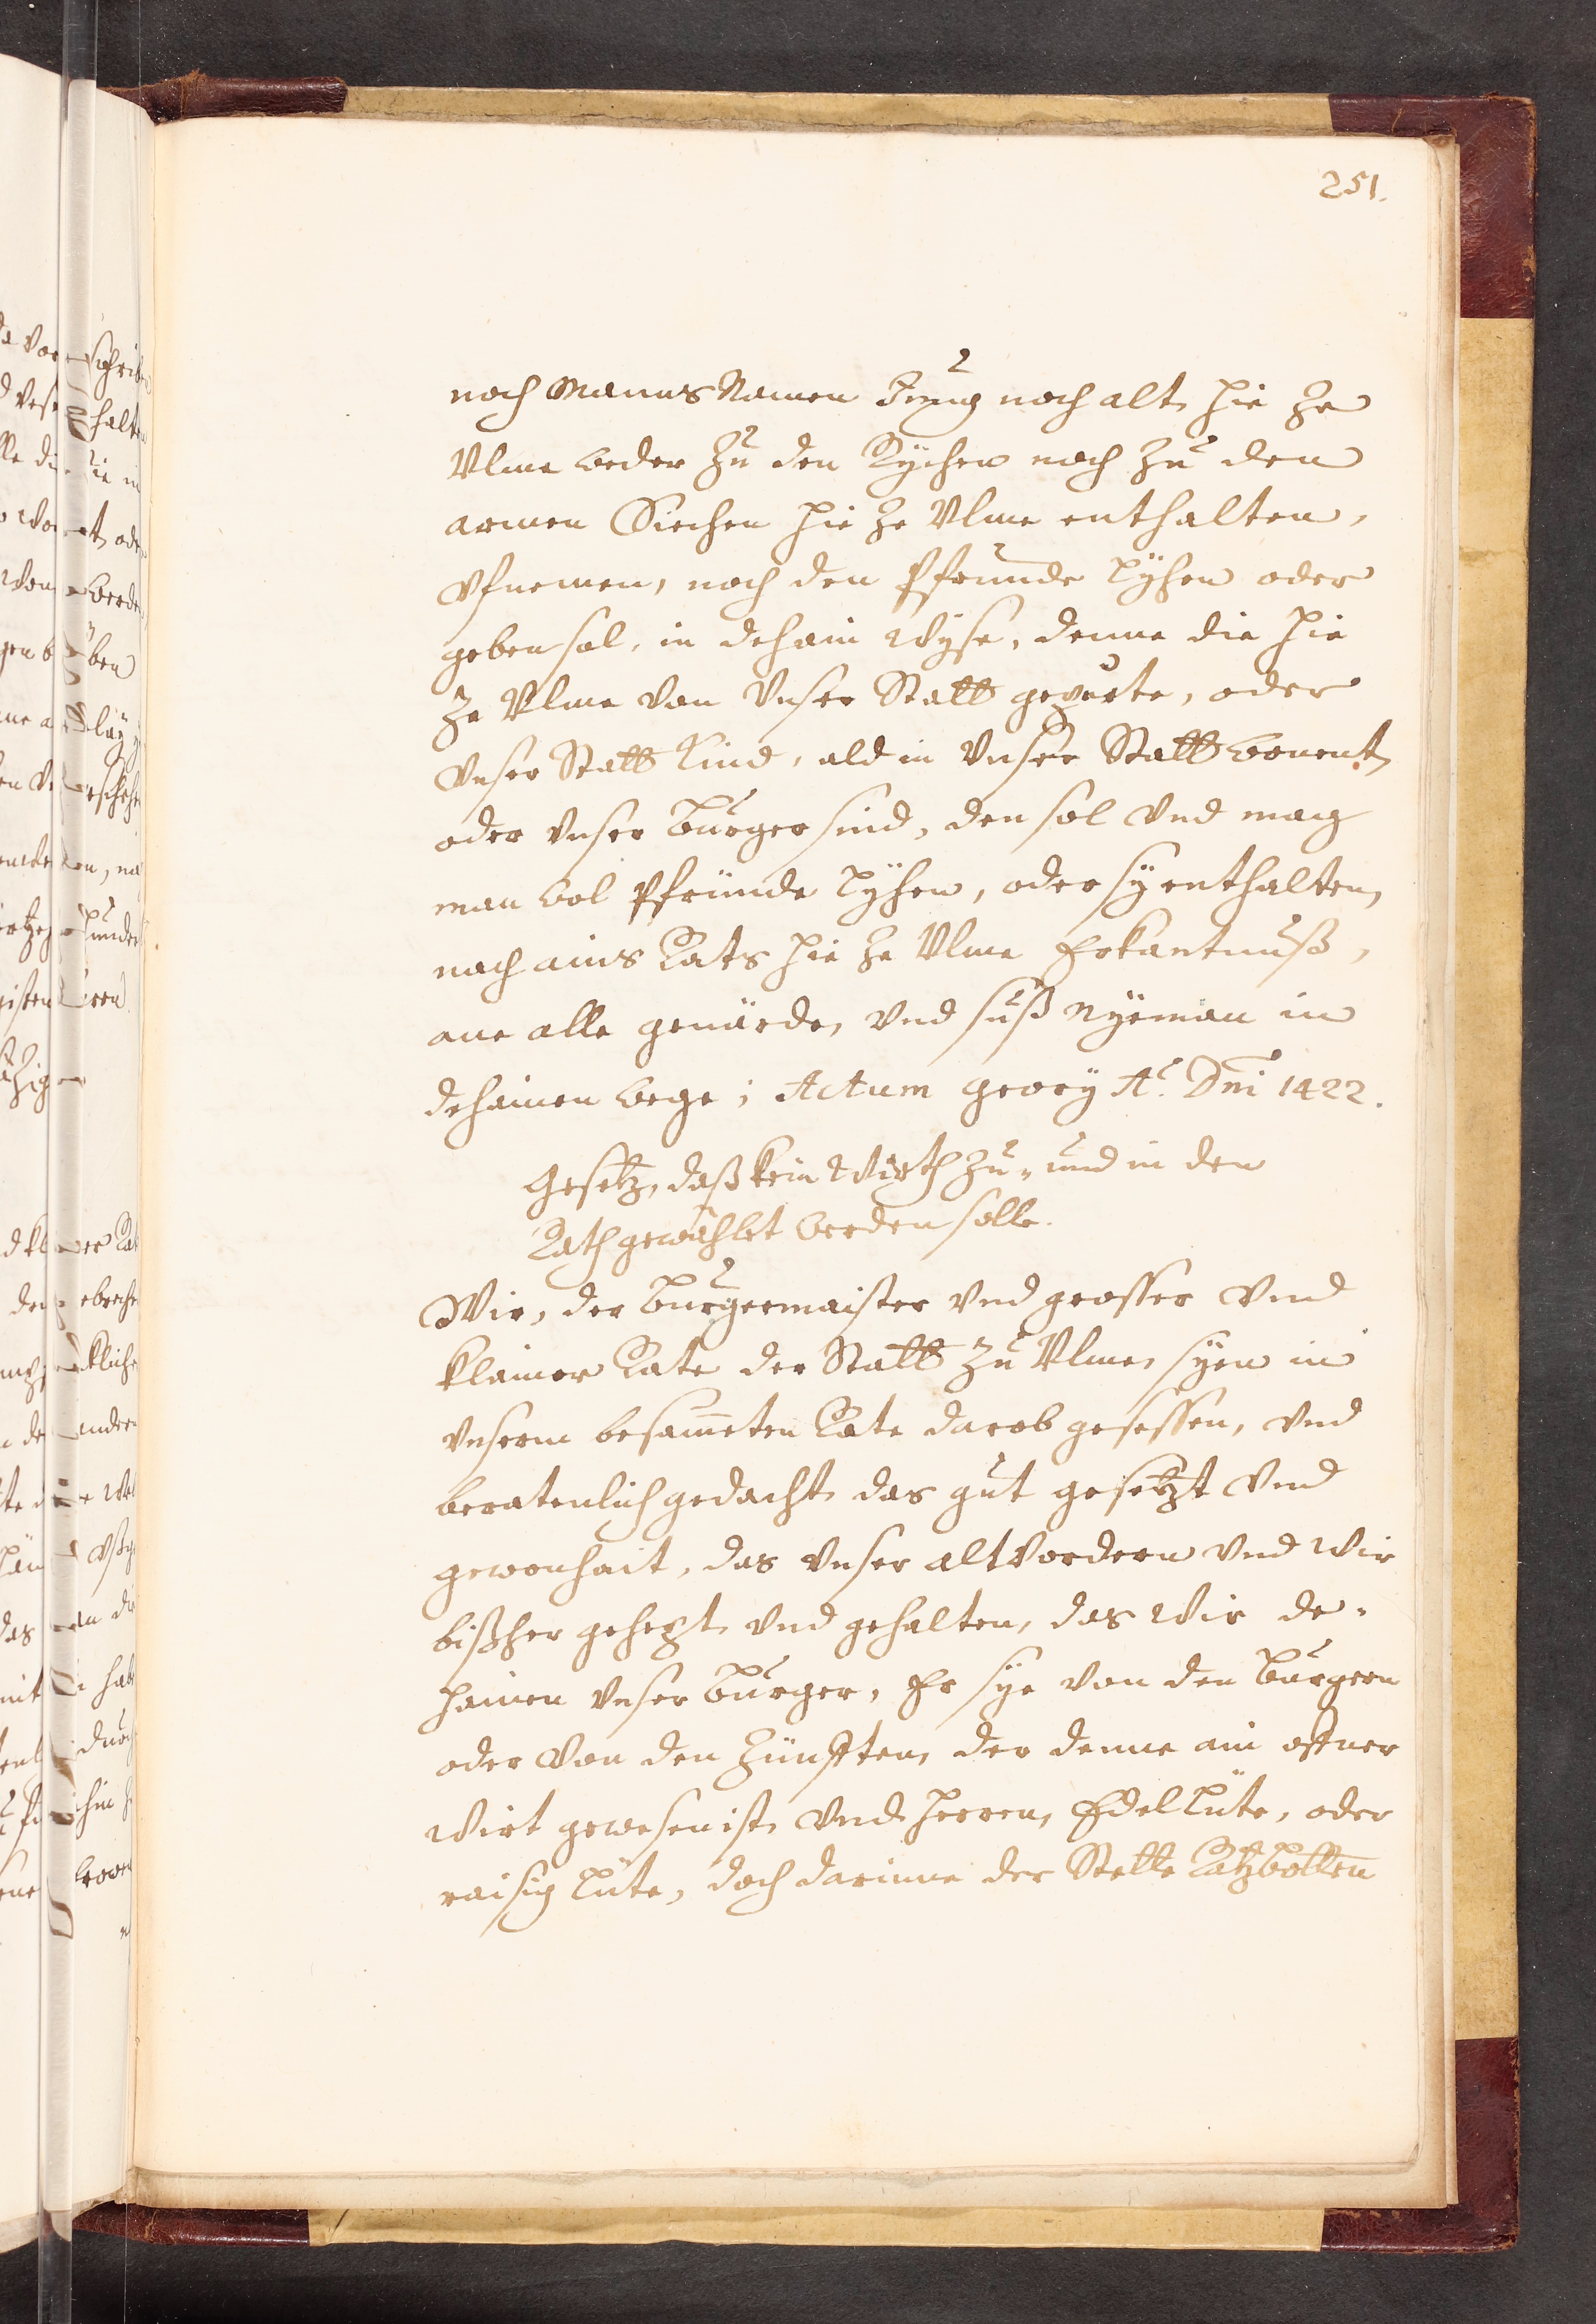 251.
noch Manns Namen Jung noch alt, hie ze
Vlme weder zu den Rychen noch zu den
armen Siechen hie ze Vlme enthalten,
vfnemen, noch den Pfrunde lyhen oder
geben sol, in dehain wyse, denne die hie
ze Vlme von Vnser Statt gepurte, oder
vnser Statt Kind, ald in vnser Statt wonent,
oder vnser burger sind, den sol vnd mag
man wol Pfründe lyhen, oder sy enthalten,
nach ains Rats hie ze Vlme Erkantnuß,
ane alle geuärde, vnd suß nyeman in
dehainen wege; Actum Geory Aõ. Dni 1422.
Gesetz, daß kein Wirth zu- und in den
Rath gewählet werden solle.
Wir, der burgermaister vnd grosser vnd
klainer Rate der Statt zu Vlme, syen in
vnserm besam̄eten Rate darob gesessen, vnd
beratenlich gedacht das gut gesetzt vnd
gewonhait, das vnser altvordern vnd Wir
bißher gehept vnd gehalten, das Wir de-
hainen vnser burger, Er sye von den burgern
oder von den Zünfften, der denne ain offner
Wirt gewesen ist, vnd herren, Edel lüte, oder
raisig lüte, doch darinne der Stette Ratzbotten